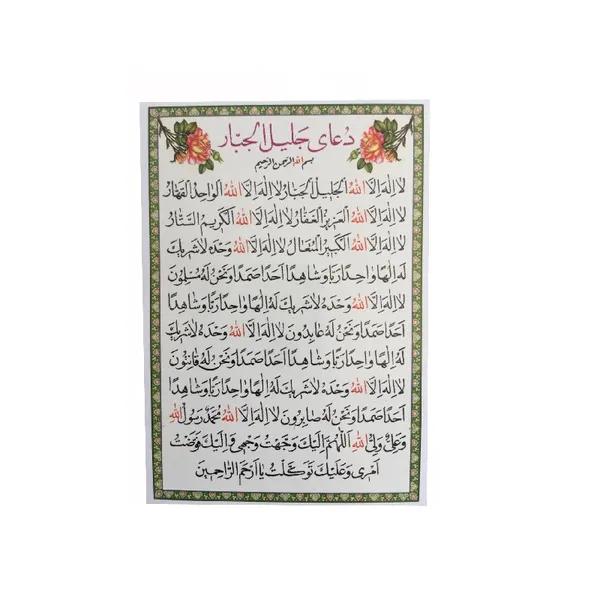 دُعای جَلیلُ الجَبّار
بسم الله الرحمن الرحیم
لا اِلٰهَ اِلَّا اللهُ الْجَلیلُ الْجَبّارُ لا اِلٰهَ اِلَّا اللهُ الْواحِدُ الْقَهّارُ
لا اِلٰهَ اِلَّا اللهُ الْعَزیزُ الْغَفّارُ لا اِلٰهَ اِلَّا اللهُ الْكَریمُ السَّتّارُ
لا اِلٰهَ اِلَّا اللهُ الْكَبیرُ الْمُتَعالُ لا اِلٰهَ اِلَّا اللهُ وَحْدَهُ لاشَریكَ
لَهُ اِلٰهًا واحِدًا رَبًّا وَشاهِدًا اَحَدًا صَمَدًا وَنَحْنُ لَهُ مُسْلِمُونَ
لا اِلٰهَ اِلَّا اللهُ وَحْدَهُ لاشَریكَ لَهُ اِلٰهًا واحِدًا رَبًّا وَشاهِدًا
اَحَدًا صَمَدًا وَنَحْنُ لَهُ عابِدُونَ لا اِلٰهَ اِلَّا اللهُ وَحْدَهُ لاشَریكَ
لَهُ اِلٰهًا واحِدًا رَبًّا وَشاهِدًا اَحَدًا صَمَدًا وَنَحْنُ لَهُ قانِتُونَ
لا اِلٰهَ اِلَّا اللهُ وَحْدَهُ لاشَریكَ لَهُ اِلٰهًا واحِدًا رَبًّا وَشاهِدًا
اَحَدًا صَمَدًا وَنَحْنُ لَهُ صابِرُونَ لا اِلٰهَ اِلَّا اللهُ مُحَمَّدٌ رَسُولُ اللهِ
وَعَلِیٌّ وَلِیُّ اللهِ اَللّٰهُمَّ اِلَیْكَ وَجَّهْتُ وَجْهی وَ اِلَیْكَ فَوَّضْتُ
اَمْری وَعَلَیْكَ تَوَكَّلْتُ یا اَرْحَمَ الرّاحِمینَ